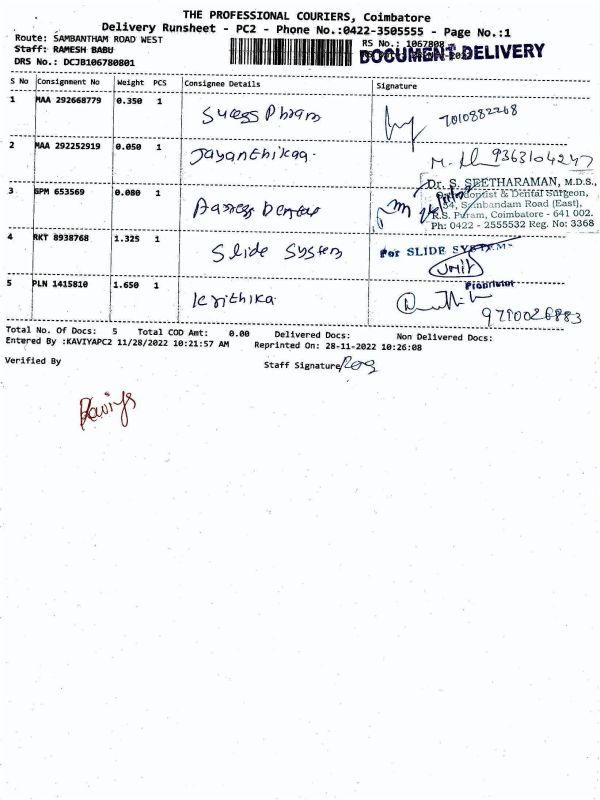 THE PROFESSIONAL COURIERS, Coimbatore
Delivery Runsheet - PC2 - Phone No.:0422-3505555 - Page No.:1
Route: SAMBANTHAM ROAD WEST
RS No.: 1067808
Staff: RAMESH BABU
DOCUMENT DELIVERY
DRS No.: DCJB106780801
S No Consignment No Weight PCS Consignee Details Signature
1 MAA 292668779 0.350 1 Sucess Pharm 7010882268
2 MAA 292252919 0.050 1 Jayanthikaa. 9363104247
3 GPM 653569 0.080 1
Dr. S. SEETHARAMAN, M.D.S.,
Orthodontist & Dental Surgeon,
54, Sambandam Road (East),
R.S. Puram, Coimbatore - 641 002.
Ph: 0422 - 2555532 Reg. No: 3368
4 RKT 8938768 1.325 1 Slide System For SLIDE SYSTEMS
Proprietor
5 PLN 1415810 1.650 1 Krithika 9790026883
Total No. Of Docs: 5 Total COD Amt: 0.00 Delivered Docs: Non Delivered Docs:
Entered By :KAVIYAPC2 11/28/2022 10:21:57 AM Reprinted On: 28-11-2022 10:26:08
Verified By Staff Signature
Kaviya